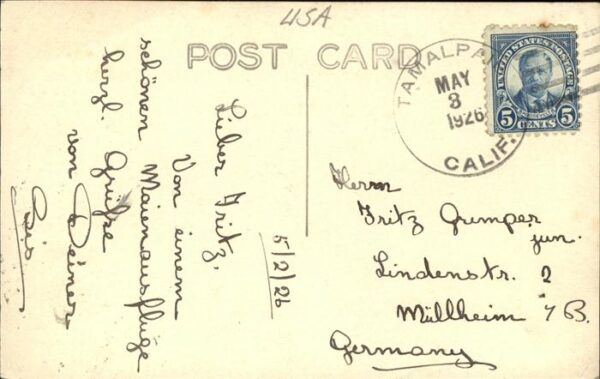 USA
POST CARD
TAMALPA
MAY
3
1926
CALIF.
UNITED STATES POSTAGE
5 CENTS 5
5/2/26
Lieber Fritz,
Von einem
schönen Maienausfluge
herzl. Grüße
von Deiner
Herrn
Fritz Gumper
jun.
Lindenstr. 2
Müllheim i/B.
Germany